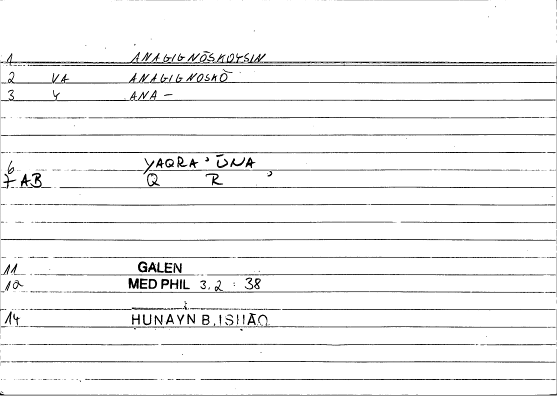 1 ANAGIGNŌSKOYSIN
2 VA ANAGIGNOSKŌ
3 Y ANA-
6 YAQRA'ŪNA
7 AB Q R '
11 GALEN
12 MED PHIL 3,2 : 38
14 HUNAYN B. ISḤĀQ